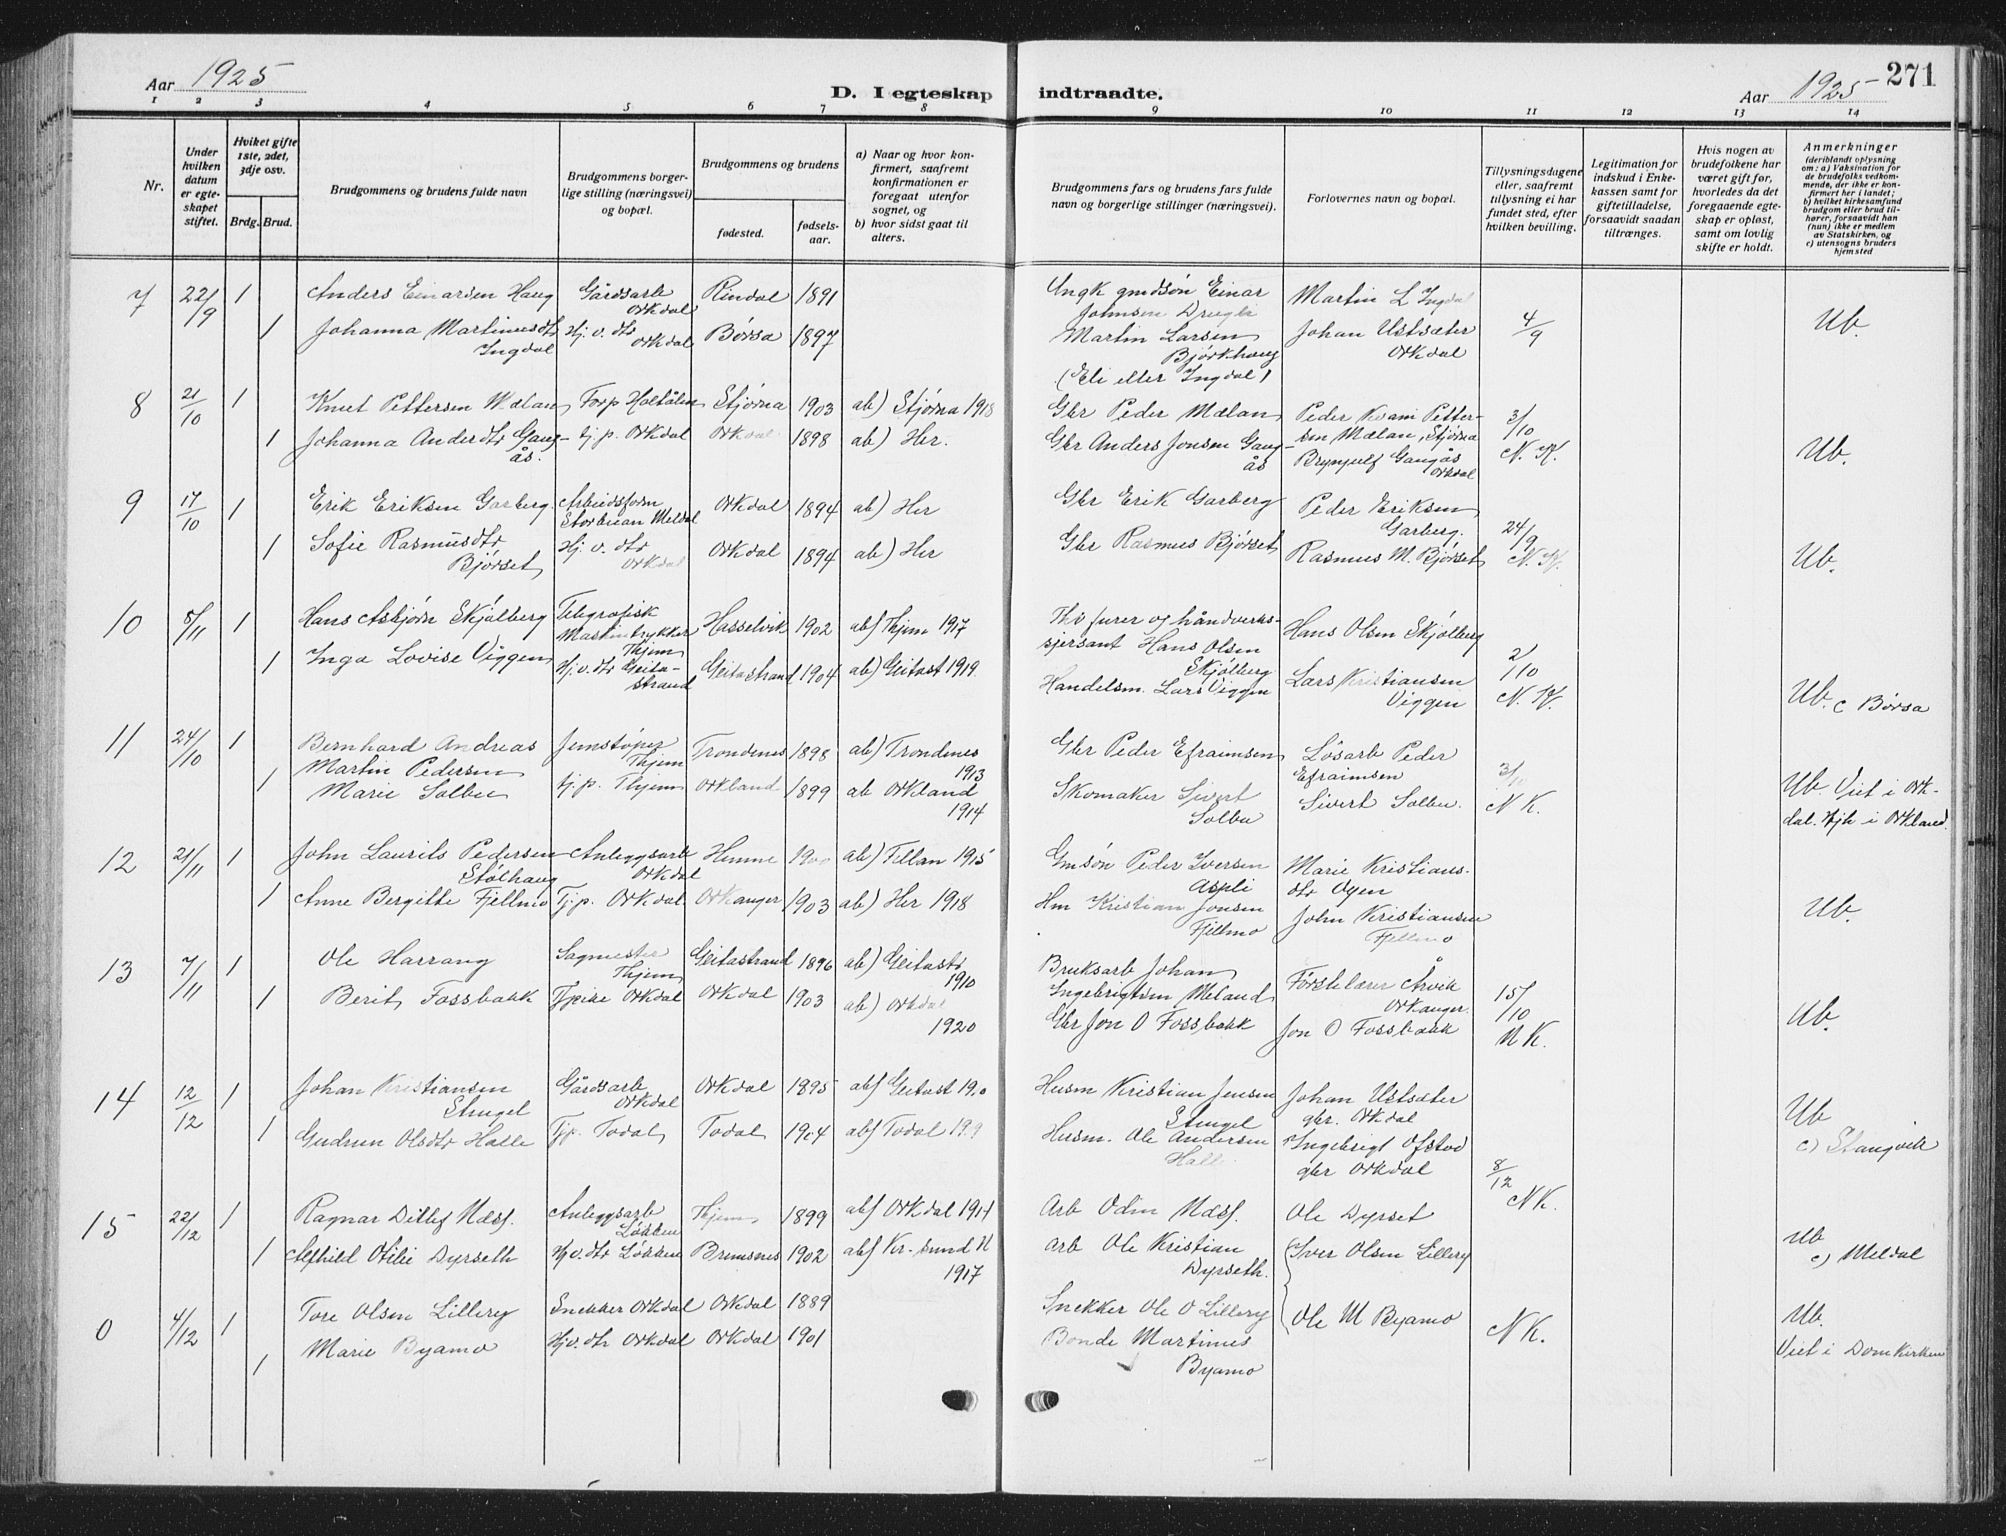 Aar 1925
D. I egteskap indtraadte.
Aar 1925
271
1 2 3 4 5 6 7 8 9 10 11 12 13 14
Nr.
Under hvilken datum er egteskapet stiftet.
Hviket gifte 1ste, 2det, 3dje osv.
Brdg. Brud.
Brudgommens og brudens fulde navn
Brudgommens borgerlige stilling (næringsvei) og bopæl.
Brudgommens og brudens
fødested.
fødselsaar.
a) Naar og hvor konfirmert, saafremt konfirmationen er foregaat utenfor sognet, og
b) hvor sidst gaat til alters.
Brudgommens fars og brudens fars fulde navn og borgerlige stillinger (næringsvei).
Forlovernes navn og bopæl.
Tillysningsdagene eller, saafremt tillysning ei har fundet sted, efter hvilken bevilling.
Legitimation for indskud i Enkekassen samt for giftetilladelse, forsaavidt saadan tiltrænges.
Hvis nogen av brudefolkene har været gift før, hvorledes da det foregaaende egteskap er opløst, samt om lovlig skifte er holdt.
Anmerkninger
(deriblandt oplysning om: a) Vaksination for de brudefolks vedkommende, der ikke er konfirmert her i landet; b) hvilket kirkesamfund brudgom eller brud tilhører, forsaavidt han (hun) ikke er medlem av Statskirken, og c) utensogns bruders hjemsted
7 22/9 1 Anders Einarsen Haug Gårdsarb Orkdal Rindal 1891 Ungk gmdsøn Einar Johnsen Martin L Ingdal
1 Johanna Martinusdtr Ingdal Hj. v. dtr Orkdal Børsa 1897 Martin Larsen Bjørkhaug (Eli eller Ingdal) Johan Ustsæter Orkdal 4/9 Ub.
8 21/10 1 Knut Pettersen Mælan Forp Haltålen Stjørna 1903 ab) Stjørna 1918 Gbr Peder Mælan Peder Kvam Pettersen Mælan, Stjørna 3/10
1 Johanna Andersdtr Gangås. tj. p. Orkdal Orkdal 1898 ab) Her. Gbr Anders Jonsen Gangås Brynjulf Gangås Orkdal N. K. Ub.
9 17/10 1 Erik Eriksen Garberg Arbeidsform Meldal Orkdal 1894 ab) Her Gbr Erik Garberg Peder Eriksen Garberg. 24/9
1 Sofie Rasmusdtr Bjørset Hj. v. dtr Orkdal Orkdal 1894 ab) Her Gbr Rasmus Bjørset Rasmus M. Bjørset N. K. Ub.
10 5/11 1 Hans Asbjørn Skjølberg Telegrafisk Maskintrykker Thjem Hasselvik 1902 ab) Thjem 1917 furer og håndverkssjersant Hans Olsen Skjølberg Hans Olsen Skjølberg 2/10
1 Inga Lovise Viggen Hj. v. dtr Geitastrand Geitastrand 1904 ab) Geitast 1919 Handelsm. Lars Viggen Lars Kristiansen Viggen N. K. Ub. c Børsa
11 24/10 1 Bernhard Andreas Martin Pedersen Jernstøper Thjem Trondenes 1898 ab) Trondenes 1913 Gbr Peder Efraimsen Løsarb Peder Efraimsen 3/10
1 Marie Solbu tj. p. Thjem Orkland 1899 ab Orkland 1914 Skomaker Sivert Solbu Sivert Solbu. N K. Ub. Viet i Orkdal. Hjh i Orkland.
12 21/11 1 John Laurits Pedersen Stølhaug Anleggsarb Orkdal Hemne ab) Fillan 1915 Gmsøn Peder Iversen Aspli Marie Kristiansdtr Oyen
1 Anne Bergitte Fjellmo Tj. p. Orkdal Orkanger 1903 ab) Her 1918 Hm Kristian Jonsen Fjellmo John Kristiansen Fjellmo Ub.
13 7/11 1 Ole Harrang Sagmester Thjem Geitastrand 1896 ab) Geitastr 1910 Bruksarb Johan Ingebrigtsen Meland Førstelærer Årvik Orkanger 15/10
1 Berit Fossbakk Tjeike Orkdal Orkdal 1903 ab) Orkdal 1920 Gbr Jon O Fossbakk Jon O Fossbakk N K. Ub.
14 12/12 1 Johan Kristiansen Stengel Gårdsarb Orkdal Orkdal 1895 ab) Geitast 19.0 Husm Kristian Jensen Stengel Johan Ustsæter gbr. Orkdal
1 Gudrun Olsdtr Halle Tj. p. Todal Todal 1904 ab) Todal 1909 Husm. Ole Andersen Halle Ingebrigt Ofstad gbr Orkdal 8/12 N K. Ub c) Stangvik
15 22/12 1 Ragnar Ditlef Næss. Anleggsarb Løkken Thjem 1899 ab) Orkdal 1914 Arb Odin Næss. Ole Dyrset
1 Alfhild Otilie Dyrseth Hj v. dtr Løkken Bremsnes 1902 ab) Kr. sund N 1917 Arb Ole Kristian Dyrseth. Iver Olsen Lillery Ub c) Meldal
0 4/12 1 Tore Olsen Lillery Snekker Orkdal Orkdal 1889 Snekker Ole O Lillery Ole M Byamo N K. Ub.
1 Marie Byamo Hjv. dtr Orkdal Orkdal 1901 Bonde Martinus Byamo Viet i Domkirken